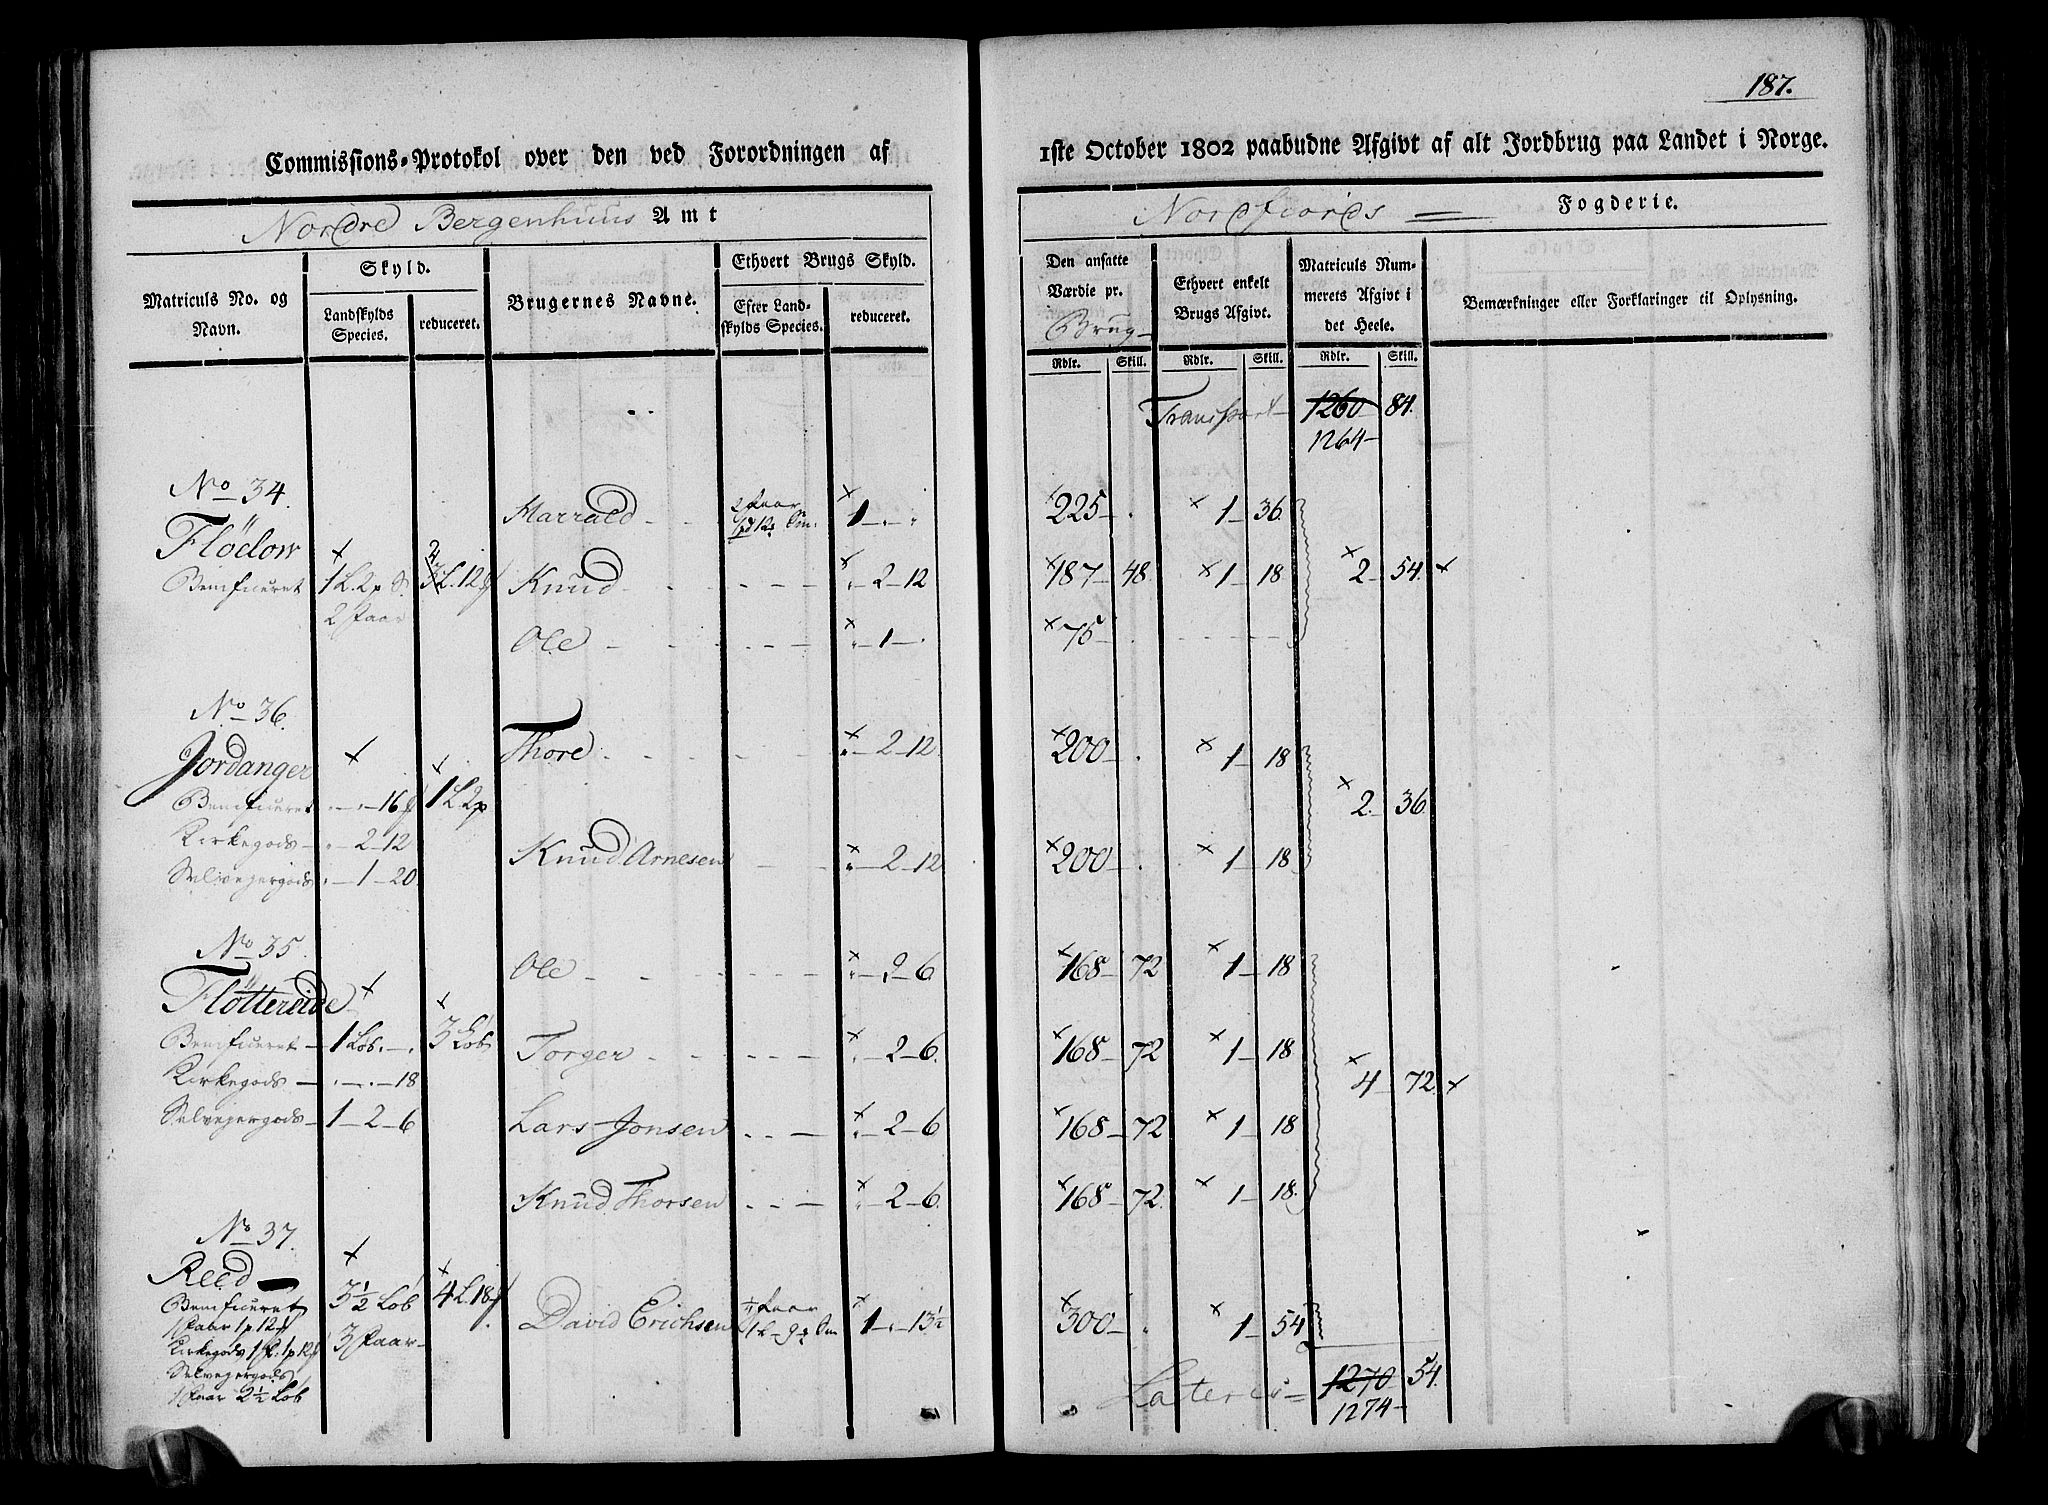 187.
Commissions-Protokol over den ved Forordningen af 1ste October 1802 paabudne Afgivt af alt Jordbrug paa Landet i Norge.
Nordre Bergenhuus Amt
Nordfiords Fogderie.
Matriculs No. og Navn.
Skyld.
Landskylds Species.
reduceret.
Brugernes Navne.
Ethvert Brugs Skyld.
Efter Landskylds Species.
reduceret.
Den ansatte Værdie pr. Brug
Ethvert enkelt Brugs Afgivt.
Matriculs Nummerets Afgivt i det Heele.
Bemærkninger eller Forklaringer til Oplysning.
Rdlr. Skill. Rdlr. Skill. Rdlr. Skill.
Transport 1260 84.
1264
No 34.
Flödow
Beneficeret 1 L. 2 p
2 Faar
L. 12
Marrald 2 Faar 1 225 1 36.
Knud 2 12 187 48. 1 18 2 54.
Ole 1 75
No 36.
Jordanger
Beneficeret 16 1 L. 2 p
Kirkegods 2 12
Selvejergods 1 20
Thore 2 12 200 1 18
2 36
Knud Arnesen 2 12 200 1 18
No 35.
Flöttereide
Beneficeret 1 Löb. 3 Löb
Kirkegods 18
Selvejergods 1 2 6
Ole 2 6 168 72 1 18
Torger 2 6. 168 72 1 18
4 72
Lars Jonsen 2 6 168 72 1 18
Knud Thorsen 2 6. 168 72. 1 18.
No 37.
Reed
Beneficeret 3½ Löb 4 L. 18
1 Faar 1 p 12
3 Faar
Kirkegods 1 1 p 12
Selvejergods
1 Faar 2½ Löb
David Erichsen ½ Faar 1 13½ 300 1 54
Lateris 1270 54.
1274